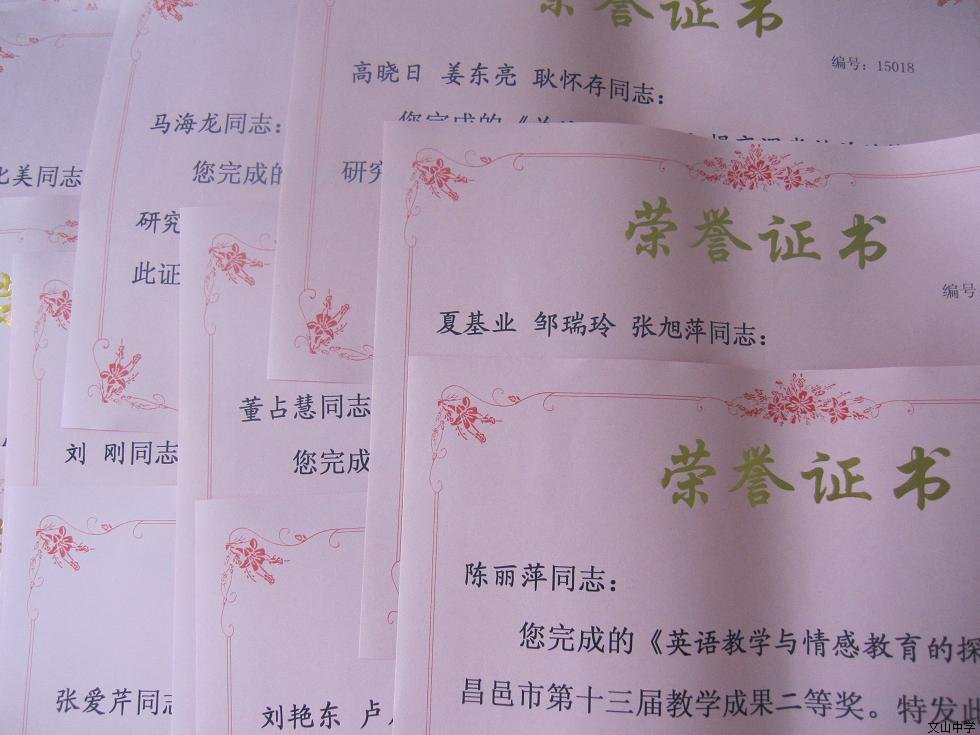 荣誉证书
编号：15018
高晓日 姜东亮 耿怀存同志：
您完成的《
研究
马海龙同志：
您完成的
研究
此证
美同志
荣誉证书
编号
夏基业 邹瑞玲 张旭萍同志：
董占慧同志
您完成
刘 刚同志
荣誉证书
陈丽萍同志：
您完成的《英语教学与情感教育的探
昌邑市第十三届教学成果二等奖。特发此
张爱芹同志
刘艳东 卢
文山中学